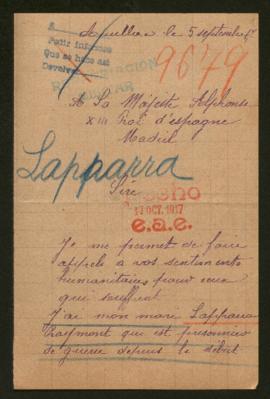 Aiguillon le 5 septembre
A
Pedir informes
Que se hace asi
Devolver
9679
A Sa Majeste Alphonse
XIII Roi d'espagne
Madrid
Lapparra
Sire
17 OCT. 1917
e.a.e.
Je me permet de faire
appels a vos sentiments
humanitaires pour ceux
qui souffrent
J'ai mon mari Lapparra
Raymont qui est prisonnier
de guerre depuis le début